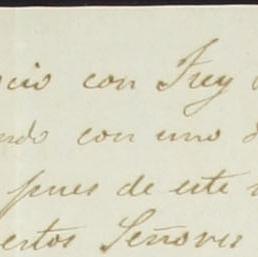 cio con Frey
ndo con uno
pues de este
ertos Señores